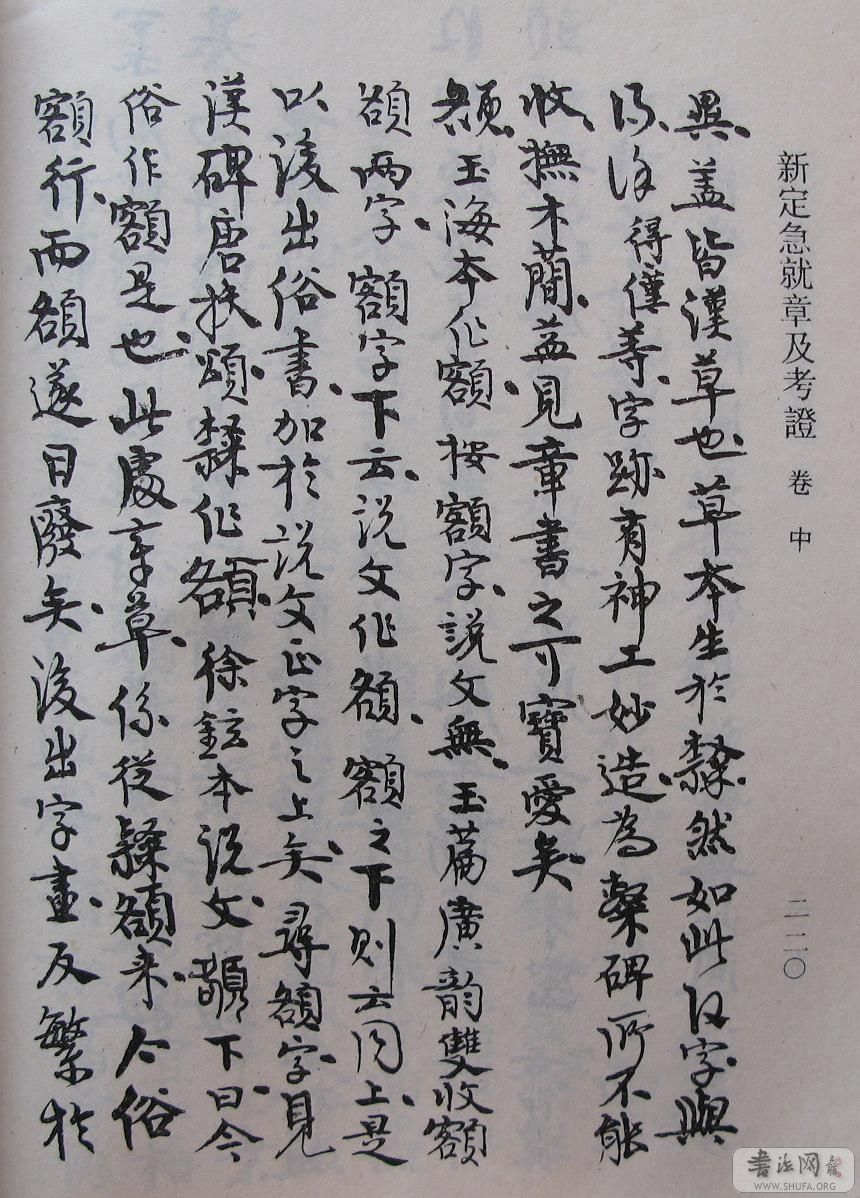 新定急就章及考證 卷中
二二〇
異蓋皆漢草也草本生於隸然如此段字與
得僅等字跡有神工妙造為隸碑所不能
收撫木蕳蓋見章書之可寶愛矣
額玉海本作額按額字說文無玉篇廣韵雙收額
頟兩字額字下云說文作頟額之下則云同上是
以後出俗書加於說文正字之上矣尋額字見
漢碑唐扶頌隸作頟徐鉉本說文頟下曰今
俗作額是也此處章草係從隸頟來今俗
額行而頟遂日廢矣後出字畫反繁於
書法网
WWW.SHUFA.ORG